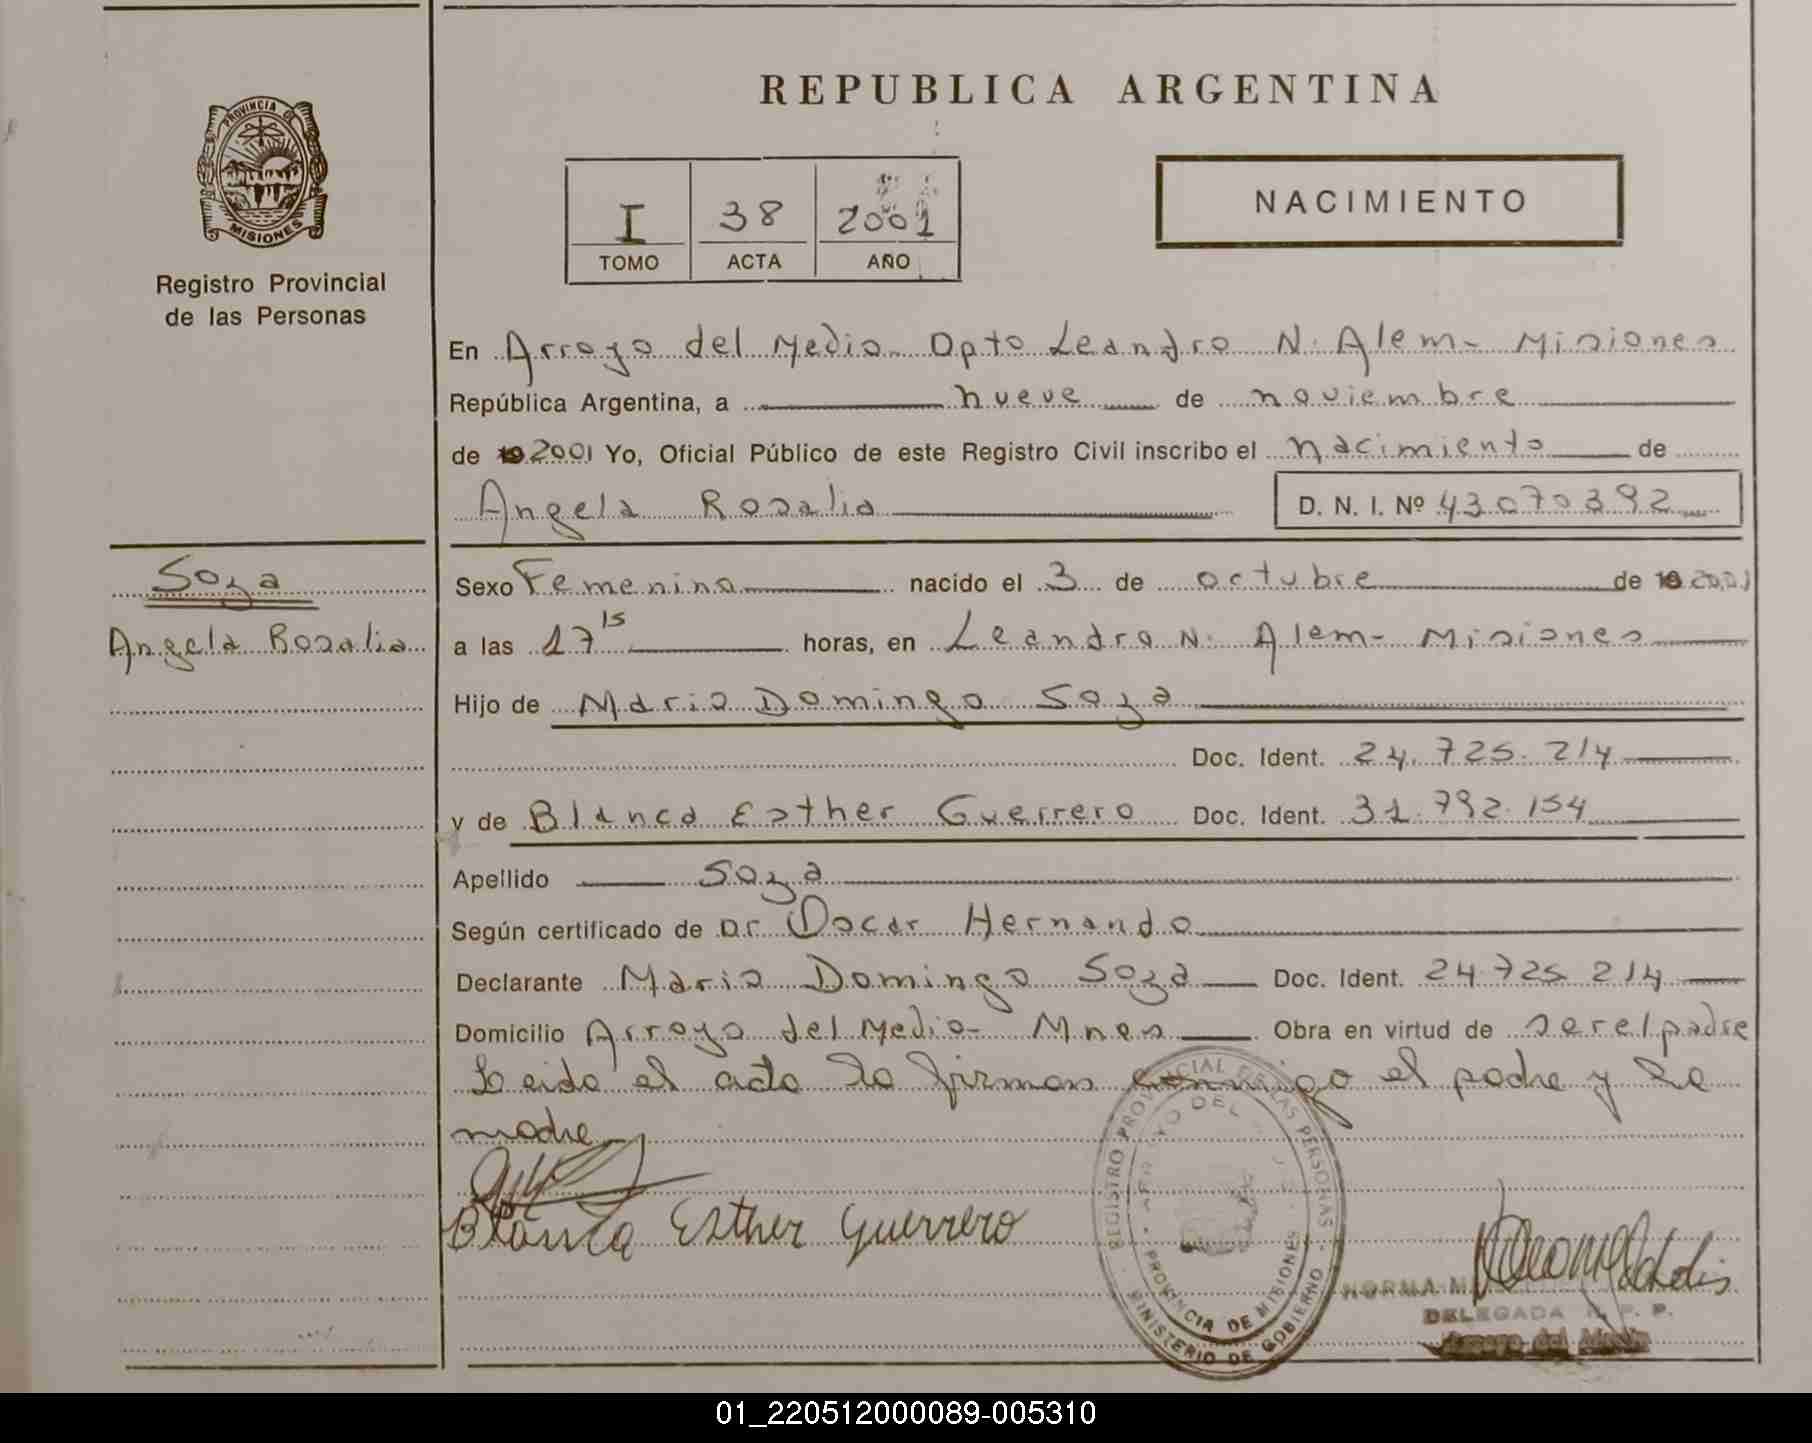 REPUBLICA ARGENTINA
PROVINCIA DE
MISIONES
Registro Provincial
de las Personas
I 38 2001
TOMO ACTA AÑO
NACIMIENTO
En Arroyo del Medio Dpto Leandro N. Alem - Misiones
República Argentina, a nueve de noviembre
de 2001 Yo, Oficial Público de este Registro Civil inscribo el nacimiento de
Angela Rosalia D. N. I. Nº 43070392
Soza
Angela Rosalia
Sexo Femenino nacido el 3 de octubre de 2001
a las 17 15 horas, en Leandro N. Alem - Misiones
Hijo de Mario Domingo Soza
Doc. Ident. 24.725.214
y de Blanca Esther Guerrero Doc. Ident. 31.792.154
Apellido Soza
Según certificado de Dr Oscar Hernando
Declarante Mario Domingo Soza Doc. Ident. 24.725.214
Domicilio Arroyo del Medio - Mnes Obra en virtud de ser el padre
Leido el acta la firman conmigo el padre y la
madre
Blanca Esther Guerrero
REGISTRO PROVINCIAL DE LAS PERSONAS
ARROYO DEL
PROVINCIA DE MISIONES
MINISTERIO DE GOBIERNO
NORMA M
DELEGADA R. P. P.
Arroyo del Medio
01_220512000089-005310